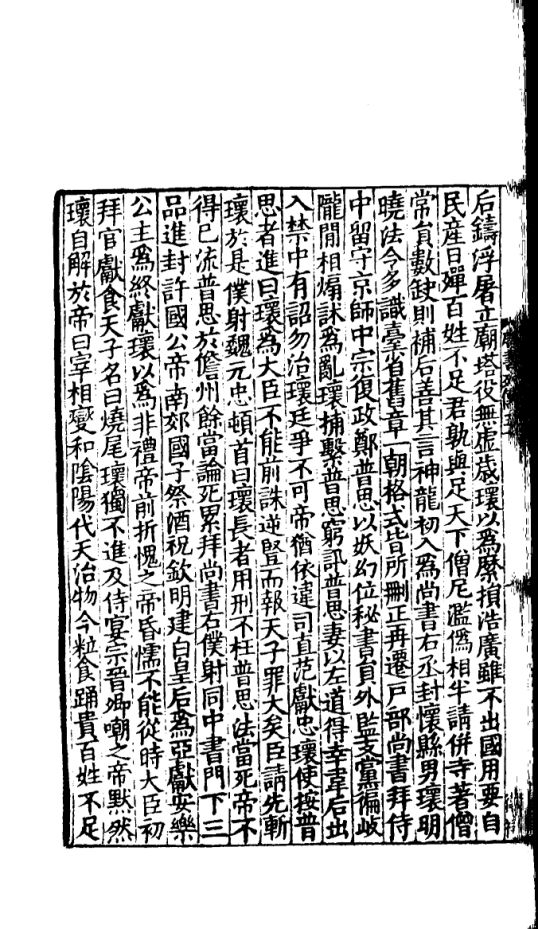 后鑄浮屠立廟塔役無虛歲瓌以爲糜損浩廣雖不出國用要自
民產日殫百姓不足君孰與足天下僧尼濫僞相半請併寺著僧
常員數缺則補后善其言神龍初入爲尚書右丞封懷縣男瓌明
曉法令多識臺省舊章一朝格式皆所刪正再遷戶部尚書拜侍
中留守京師中宗復政鄭普思以妖幻位秘書員外監支黨徧岐
隴閒相煽訹爲亂瓌捕繫普思窮訊普思妻以左道得幸韋后出
入禁中有詔勿治瓌廷爭不可帝猶依違司直范獻忠瓌使按普
思者進曰瓌爲大臣不能前誅逆豎而報天子罪大矣臣請先斬
瓌於是僕射魏元忠頓首曰瓌長者用刑不枉普思法當死帝不
得已流普思於儋州餘當論死累拜尚書右僕射同中書門下三
品進封許國公帝南郊國子祭酒祝欽明建白皇后爲亞獻安樂
公主爲終獻瓌以爲非禮帝前折愧之帝昏懦不能從時大臣初
拜官獻食天子名曰燒尾瓌獨不進及侍宴宗晉卿嘲之帝默然
瓌自解於帝曰宰相燮和陰陽代天治物今粒食踊貴百姓不足